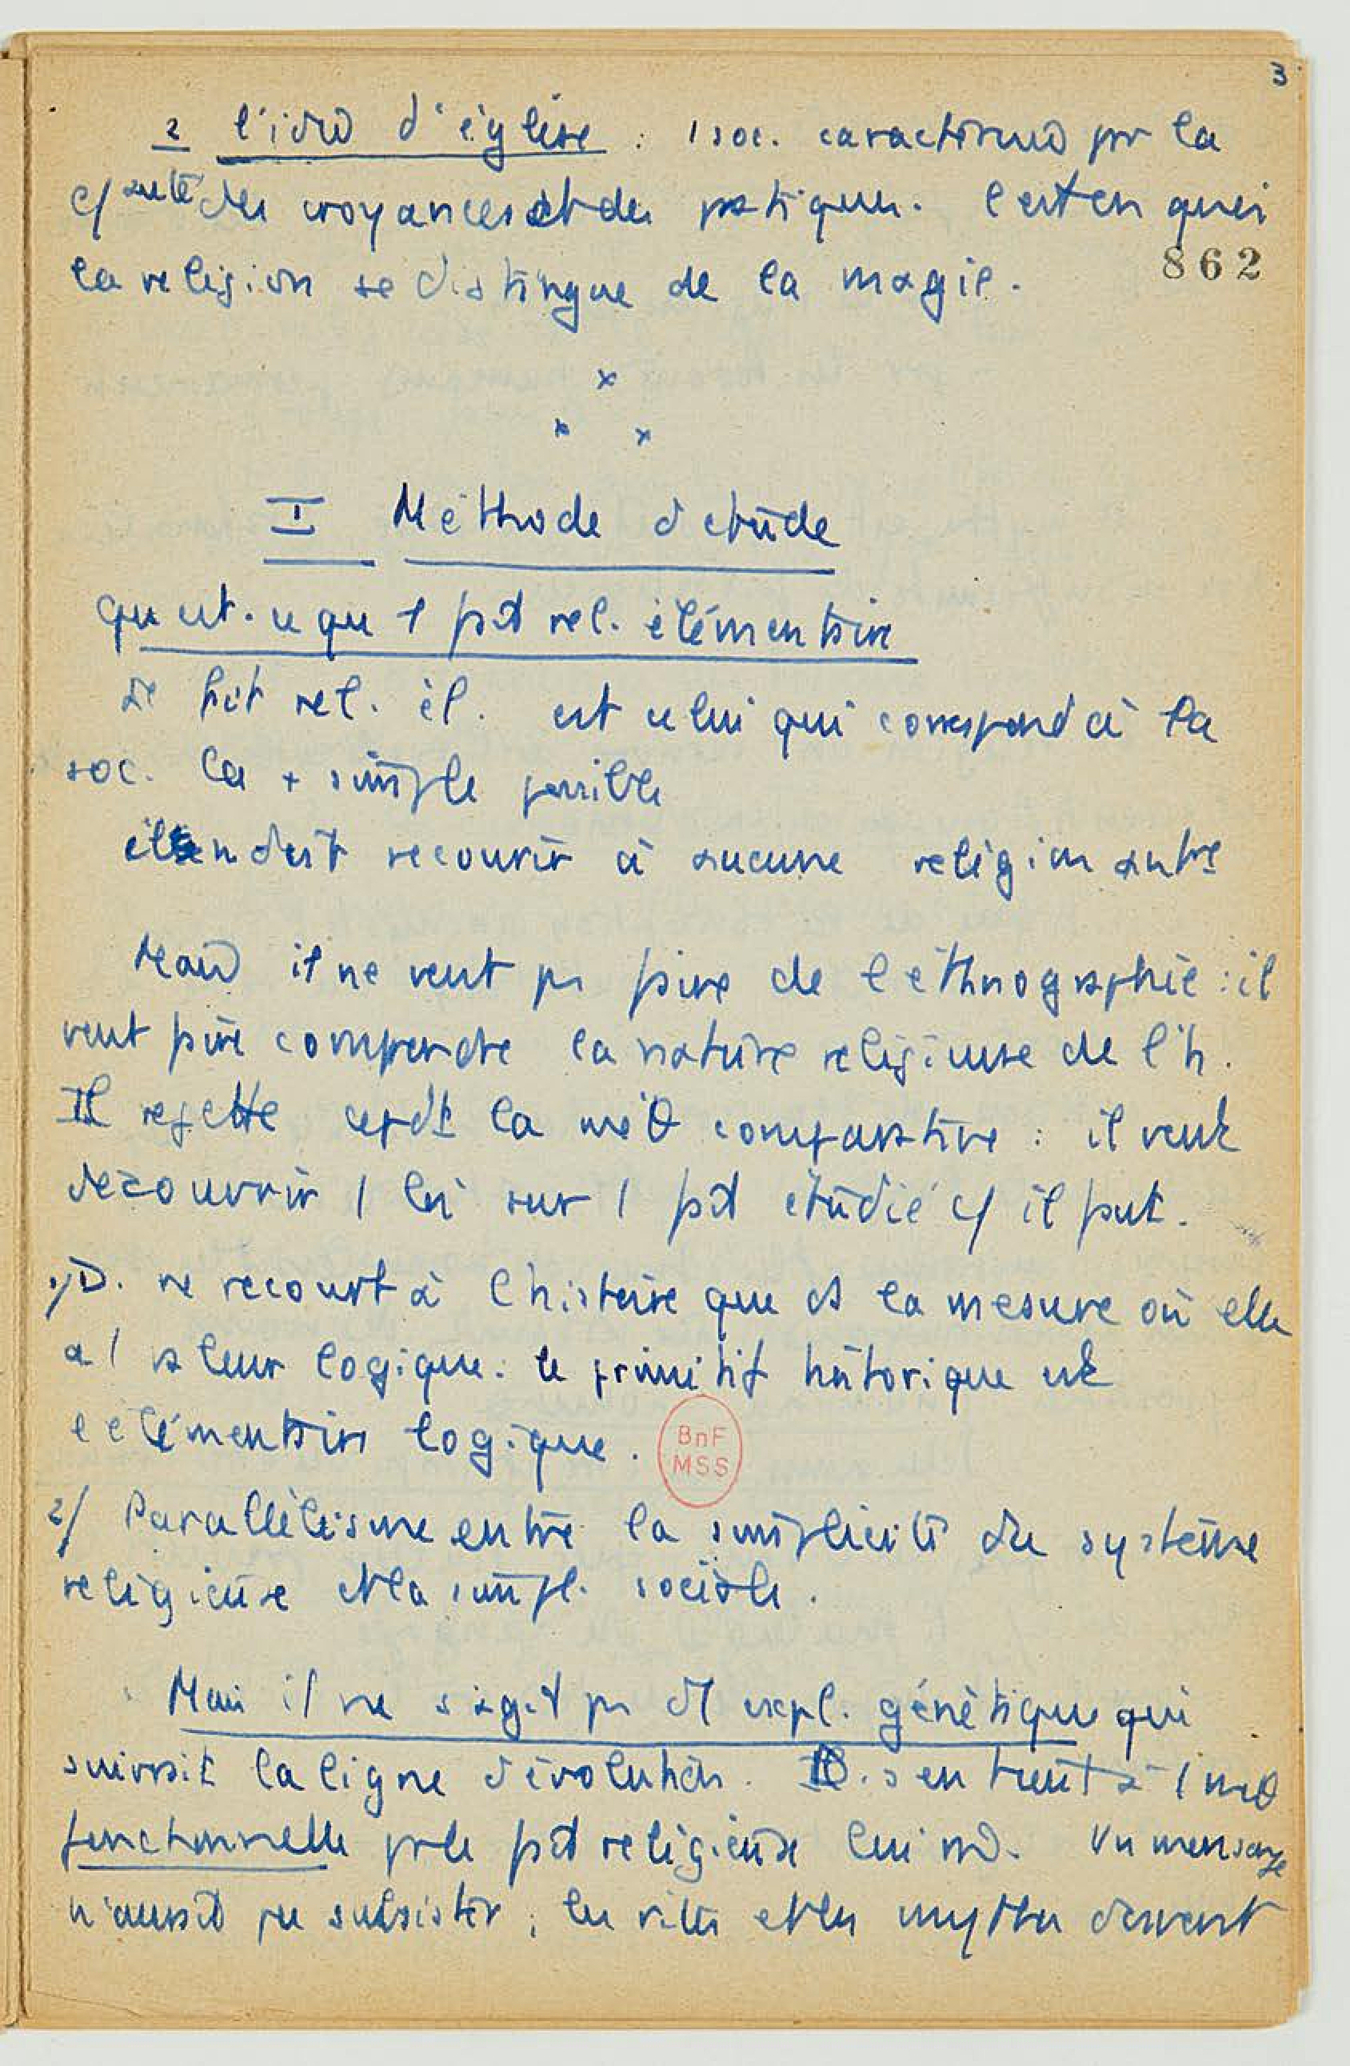 3
2 l'idée d'église : 1 soc. caractérisée pr la
c/auté des croyances et des pratiques. C'est en quoi
862
la religion se distingue de la magie.
x
x x
I Méthode d'étude
qu'est-ce qu'1 fait rel. élémentaire
Le fait rel. él. est celui qui correspond à la
soc. la + simple possible
il n doit recourir à aucune religion antre
Mais il ne veut ps faire de l'ethnographie : il
veut faire comprendre la nature religieuse de l'h.
Il rejette cepdt la méθ comparative : il veut
découvrir 1 loi sur 1 fait étudié c/ il faut.
1/ D. ne recourt à l'histoire que ds la mesure où elle
a 1 valeur logique. le primitif historique est
l'élémentaire logique.
BnF
MSS
2/ Parallélisme entre la simplicité du système
religieuse et la simpl. sociale.
Mais il ne s'agit ps d'1 expl. génétique qui
suivrait la ligne d'évolution. D. s'en tient à 1 méθ
fonctionnelle pr le fait religieuse lui m̂. Un mensonge
n'aurait pu subsister ; les rites et les mythes doivent